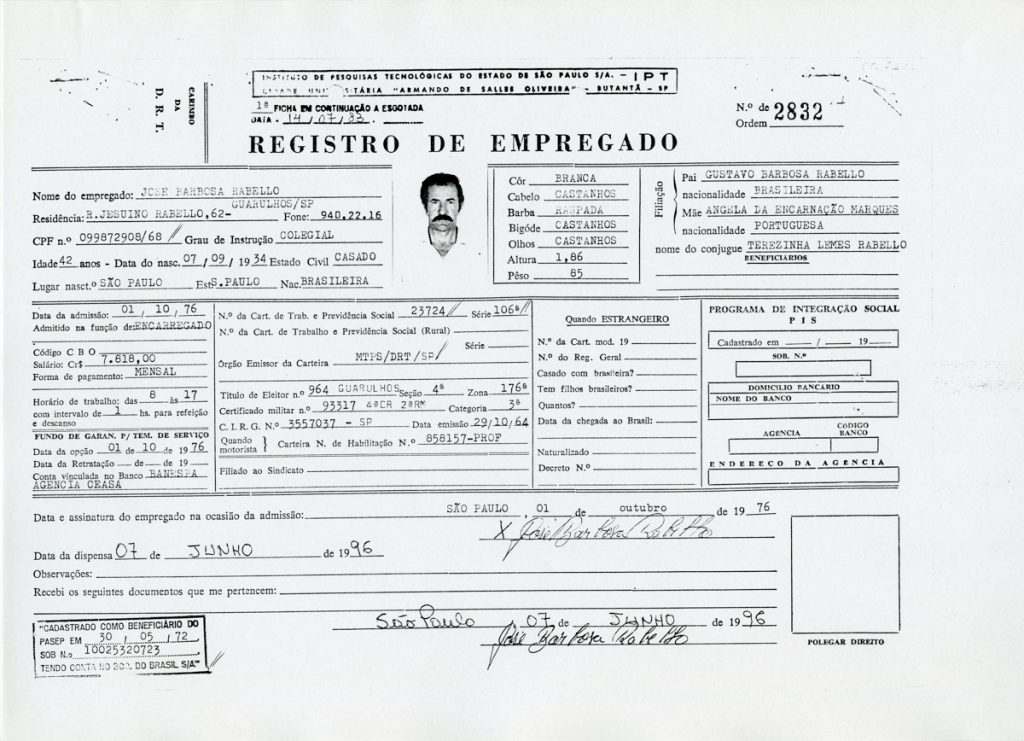 INSTITUTO DE PESQUISAS TECNOLÓGICAS DO ESTADO DE SÃO PAULO S/A. - I P T
CIDADE UNI SITÁRIA "ARMANDO DE SALLES OLIVEIRA" - BUTANTÃ - SP
CARIMBO DA D. R. T.
1ª FICHA EM CONTINUAÇÃO A ESGOTADA
DATA - 14/07/83
N.º de Ordem 2832
REGISTRO DE EMPREGADO
Nome do empregado: JOSE BARBOSA RABELLO
Residência: R.JESUINO RABELLO,62- GUARULHOS/SP Fone: 940.22.16
CPF n.º 099872908/68 Grau de Instrução COLEGIAL
Idade 42 anos - Data do nasc. 07 / 09 / 1934 Estado Civil CASADO
Lugar nasct.º SÃO PAULO Est. S.PAULO Nac. BRASILEIRA
Côr BRANCA
Cabelo CASTANHOS
Barba RASPADA
Bigóde CASTANHOS
Olhos CASTANHOS
Altura 1,86
Pêso 85
Filiação
Pai GUSTAVO BARBOSA RABELLO
nacionalidade BRASILEIRA
Mãe ANGELA DA ENCARNAÇÃO MARQUES
nacionalidade PORTUGUESA
nome do conjugue TEREZINHA LEMES RABELLO
BENEFICIÁRIOS
Data da admissão: 01 / 10 / 76
Admitido na função de: ENCARREGADO
Código C B O
Salário: Cr$ 7.818,00
Forma de pagamento: MENSAL
Horário de trabalho: das 8 às 17
com intervalo de 1 hs. para refeição
e descanso
FUNDO DE GARAN. P/ TEM. DE SERVIÇO
Data da opção 01 de 10 de 1976
Data da Retratação — de — de 19 —
Conta vinculada no Banco BANESPA
AGENCIA CEASA
N.º da Cart. de Trab. e Previdência Social 23724 Série 106ª
N.º da Cart. de Trabalho e Previdência Social (Rural)
Série
Órgão Emissor da Carteira MTPS/DRT/SP
Titulo de Eleitor n.º 964 GUARULHOS Seção 4ª Zona 176ª
Certificado militar n.º 93317 4ªCR 2ªRM Categoria 3ª
C. I. R G. N.º 3557037 - SP Data emissão 29/10/64
Quando motorista } Carteira N. de Habilitação N.º 858157-PROF
Filiado ao Sindicato
Quando ESTRANGEIRO
N.º da Cart. mod. 19
N.º do Reg. Geral
Casado com brasileira?
Tem filhos brasileiros?
Quantos?
Data da chegada ao Brasil:
Naturalizado
Decreto N.º
PROGRAMA DE INTEGRAÇÃO SOCIAL
P I S
Cadastrado em / / 19
SOB. N.º
DOMICILIO BANCÁRIO
NOME DO BANCO
AGÊNCIA
CóDIGO BANCO
ENDEREÇO DA AGÊNCIA
Data e assinatura do empregado na ocasião da admissão: SÃO PAULO , 01 de outubro de 19 76
X José Barbosa Rabello
Data da dispensa 07 de JUNHO de 1996
Observações:
Recebi os seguintes documentos que me pertencem:
São Paulo , 07 de JUNHO de 1996
José Barbosa Rabello
POLEGAR DIREITO
"CADASTRADO COMO BENEFICIÁRIO DO
PASEP EM 30 / 05 / 72
SOB N.º 10025320723
TENDO CONTA NO BCO. DO BRASIL S/A"